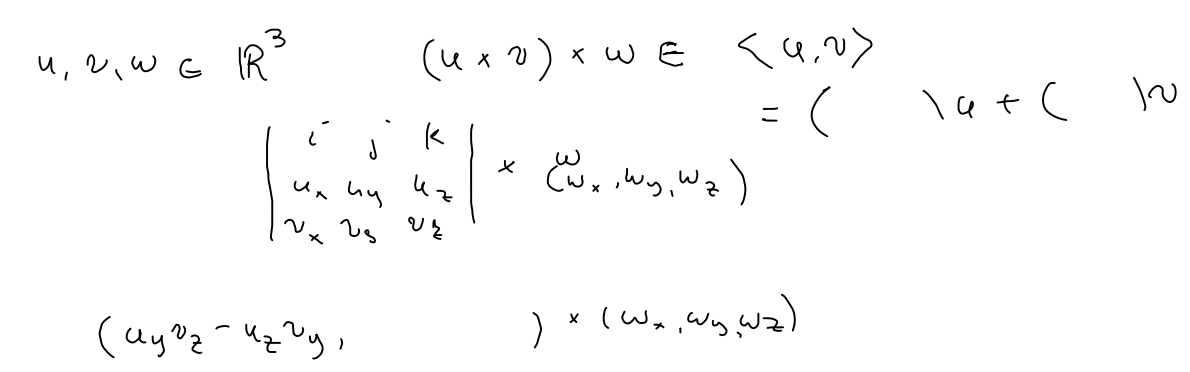 u, v, w ∈ ℝ³ (u × v) × w ∈ <u,v>
= ( )u + ( )v
| i j k |
| u_x u_y u_z | × w (w_x, w_y, w_z)
| v_x v_y v_z |
(u_y v_z − u_z v_y, ) × (w_x, w_y, w_z)